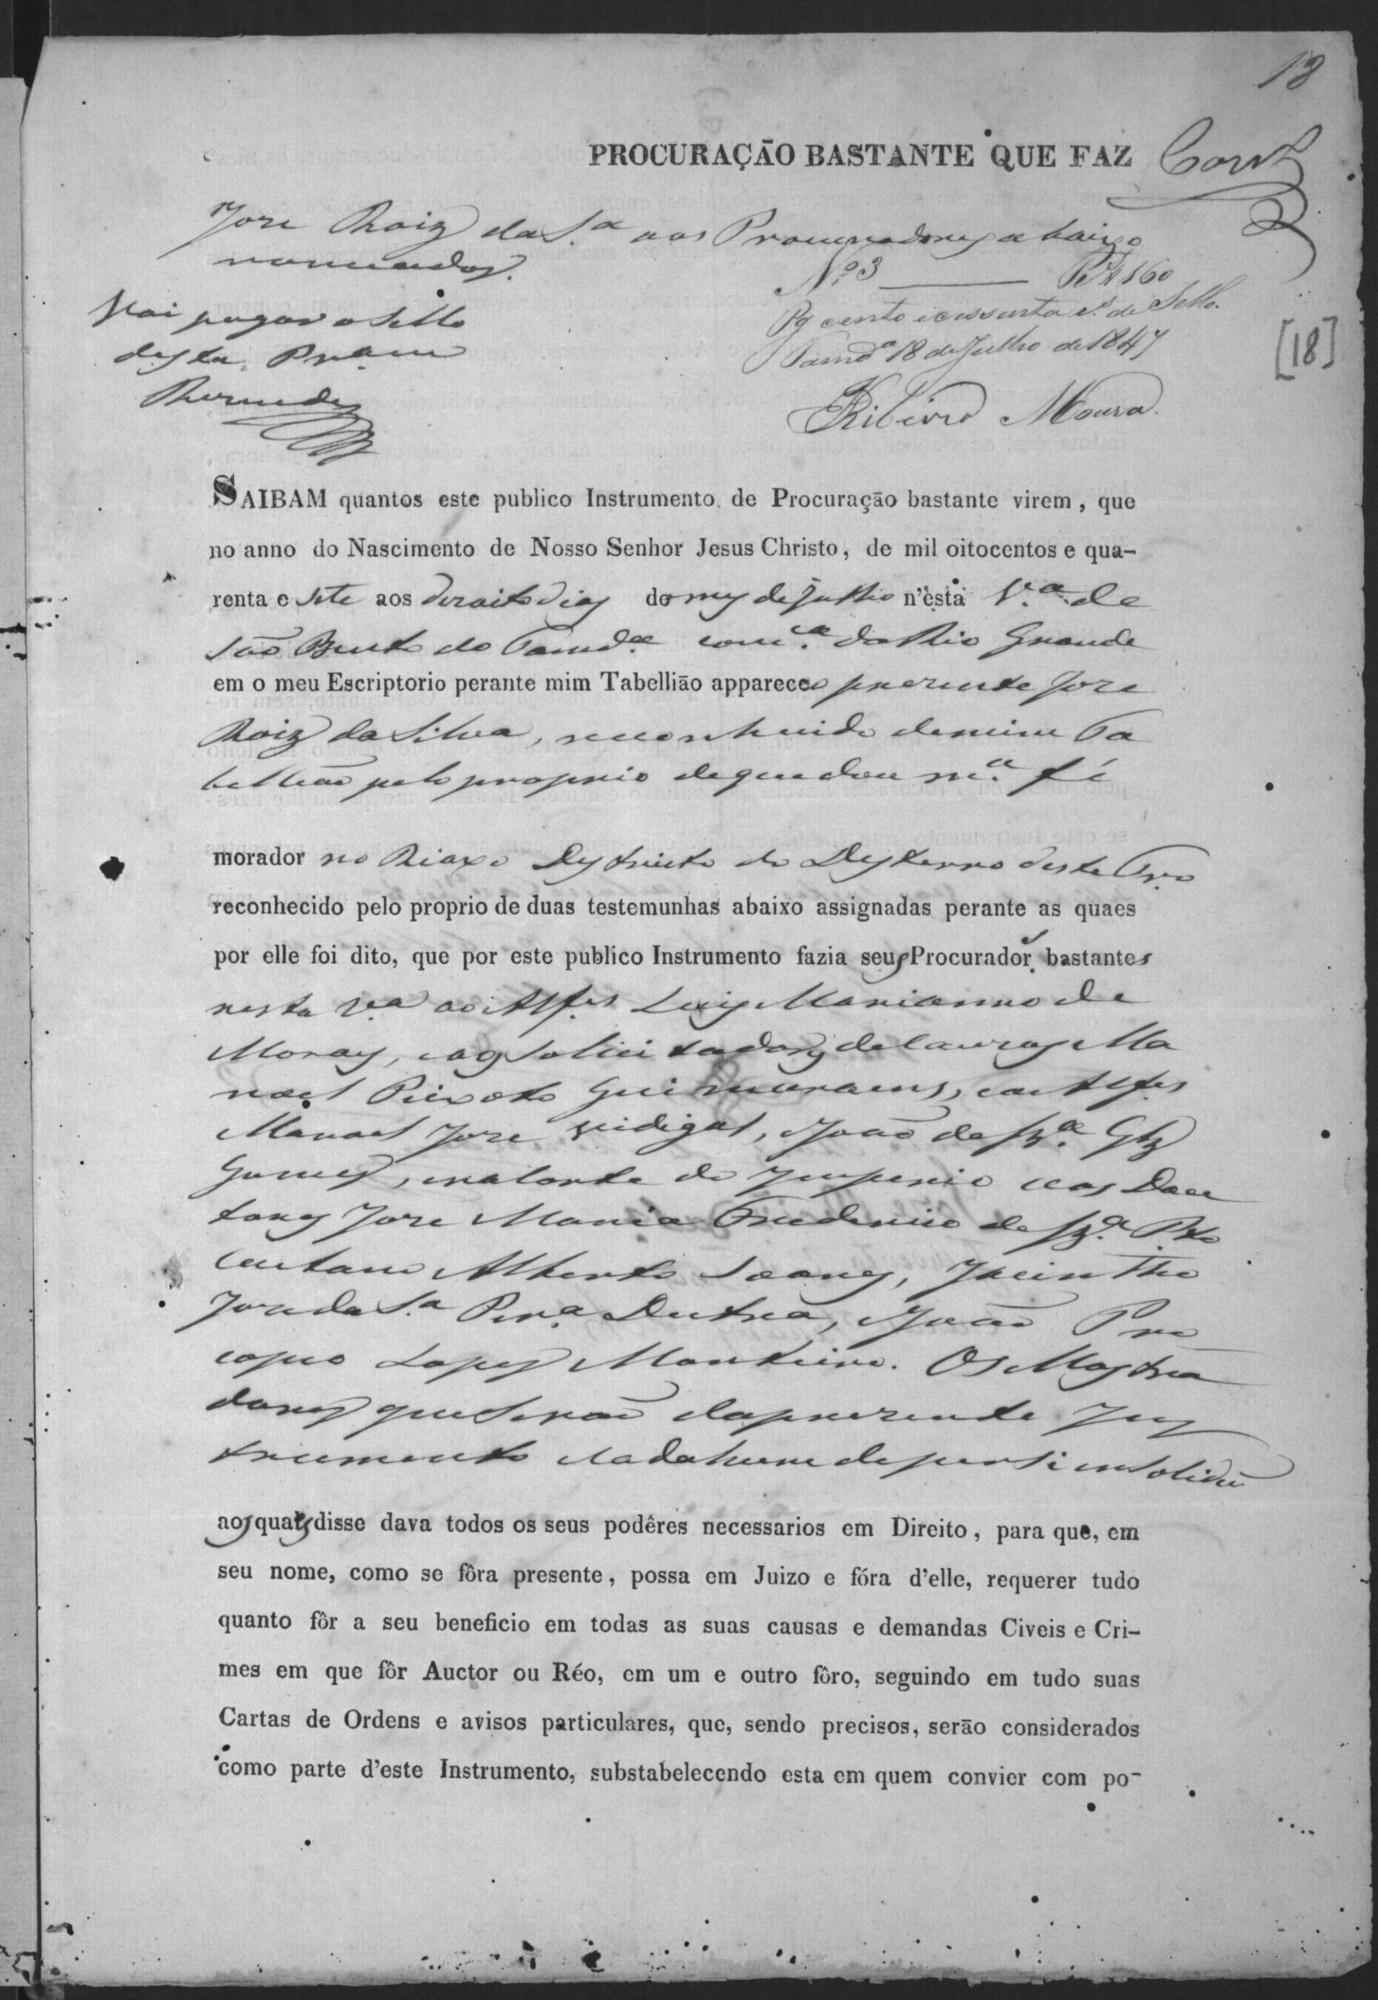 18
PROCURAÇÃO BASTANTE QUE FAZ
Jose Roiz da S.ª aos Procuradores abaixo
nomeados.
N.º 3 ——— R.s 160
Pg cento e cessenta r.s de Sello.
Tamd.ª 18 de Julho de 1847
Ribeiro Moura.
Vai pagar o Sello
desta Pram
[18]
SAIBAM quantos este publico Instrumento de Procuração bastante virem, que
no anno do Nascimento de Nosso Senhor Jesus Christo, de mil oitocentos e qua-
renta e sete aos desoito dias do mes de Julho n'esta V.ª de
São Bento do Tamd.e com.ca do Rio Grande
em o meu Escriptorio perante mim Tabellião appareceo prezente Jose
Roiz da Silva, reconhecido de mim Ta
bellião pelo proprio de que dou m.ª fé
morador no Disterro deste
reconhecido pelo proprio de duas testemunhas abaixo assignadas perante as quaes
por elle foi dito, que por este publico Instrumento fazia seus Procurador.s bastantes
nesta V.ª ao Alf.es Luis Marianno de
Moraes, e aos Solicitadores de Cauzas Ma
noel Peixoto Guimaraens, e ao Alf.es
Manoel Jose Vidigal, e João de Sz.ª Glz
Gomes, e na Corte do Imperio aos Dou
tores Jose Maria Frederico de Sz.ª Pto
Caetano Alberto Soares, Jacintho
Jose da S.ª Per.ª Dutra, e João Pro
copio Lopes Monteiro. Os Mostra
dores que serão da prezente Ins
trumento cada hum de per si in solidum
aos quaes disse dava todos os seus podêres necessarios em Direito, para que, em
seu nome, como se fôra presente, possa em Juizo e fóra d'elle, requerer tudo
quanto fôr a seu beneficio em todas as suas causas e demandas Civeis e Cri-
mes em que fôr Auctor ou Réo, em um e outro fôro, seguindo em tudo suas
Cartas de Ordens e avisos particulares, que, sendo precisos, serão considerados
como parte d'este Instrumento, substabelecendo esta em quem convier com po-